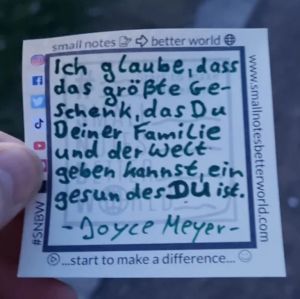 small notes better world
Ich glaube, dass
das größte Ge-
schenk, das Du
Deiner Familie
und der Welt
geben kannst, ein
gesundes DU ist.
- Joyce Meyer -
...start to make a difference...
#SNBW
www.smallnotesbetterworld.com